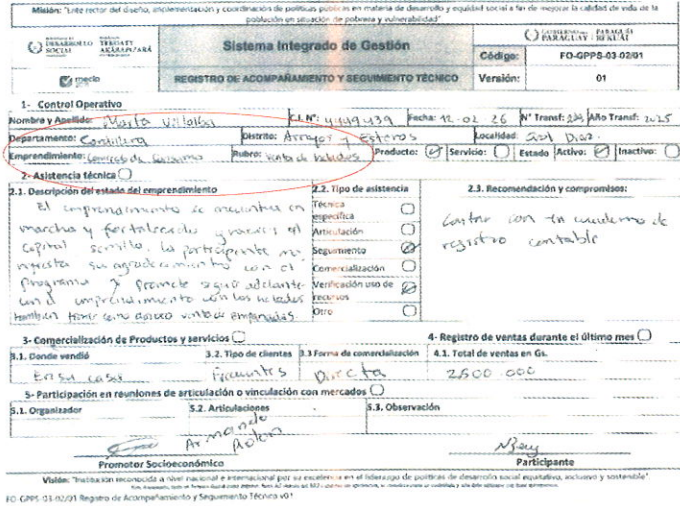 Misión: "Ente rector del diseño, implementación y coordinación de políticas públicas en materia de desarrollo y equidad social a fin de mejorar la calidad de vida de la
población en situación de pobreza y vulnerabilidad"
DESARROLLO SOCIAL TEKOATY AKÃRAPU'ÃRÃ
Sistema Integrado de Gestión
GOBIERNO DEL PARAGUAY PARAGUÁI REKUÁI
Código: FO-GPPS-03-02/01
mecip
REGISTRO DE ACOMPAÑAMIENTO Y SEGUIMIENTO TÉCNICO
Versión: 01
1- Control Operativo
Nombre y Apellido: Marta Villalba C.I. N°: 4449439 Fecha: 12-02 26 N° Transf: Año Transf: 2025
Departamento: Cordillera Distrito: Arroyos y Esteros Localidad: Diaz.
Emprendimiento: Comercio de Consumo Rubro: venta de helados Producto: Servicio: Estado Activo: Inactivo:
2- Asistencia técnica
2.1. Descripción del estado del emprendimiento
El emprendimiento se encuentra en
marcha y fortalecido gracias al
capital semilla. la participante ma
nifiesta su agradecimiento con el
programa y promete seguir adelante
con el emprendimiento con los helados
tambien tiene como venta de empanadas.
2.2. Tipo de asistencia
Técnica específica
Articulación
Seguimiento
Comercialización
Verificación uso de recursos
Otro
2.3. Recomendación y compromisos:
Contar con un cuaderno de
registro contable
3- Comercialización de Productos y servicios
4- Registro de ventas durante el último mes
3.1. Donde vendió
3.2. Tipo de clientes
3.3 Forma de comercialización
4.1. Total de ventas en Gs.
En su casa
Frecuentes
Directa
2.500.000
5- Participación en reuniones de articulación o vinculación con mercados
5.1. Organizador
5.2. Articulaciones
5.3. Observación
Armando
Promotor Socioeconómico
Participante
Visión: "Institución reconocida a nivel nacional e internacional por su excelencia en el liderazgo de políticas de desarrollo social equitativo, inclusivo y sostenible"
FO-GPPS-03-02/01 Registro de Acompañamiento y Seguimiento Técnico V01